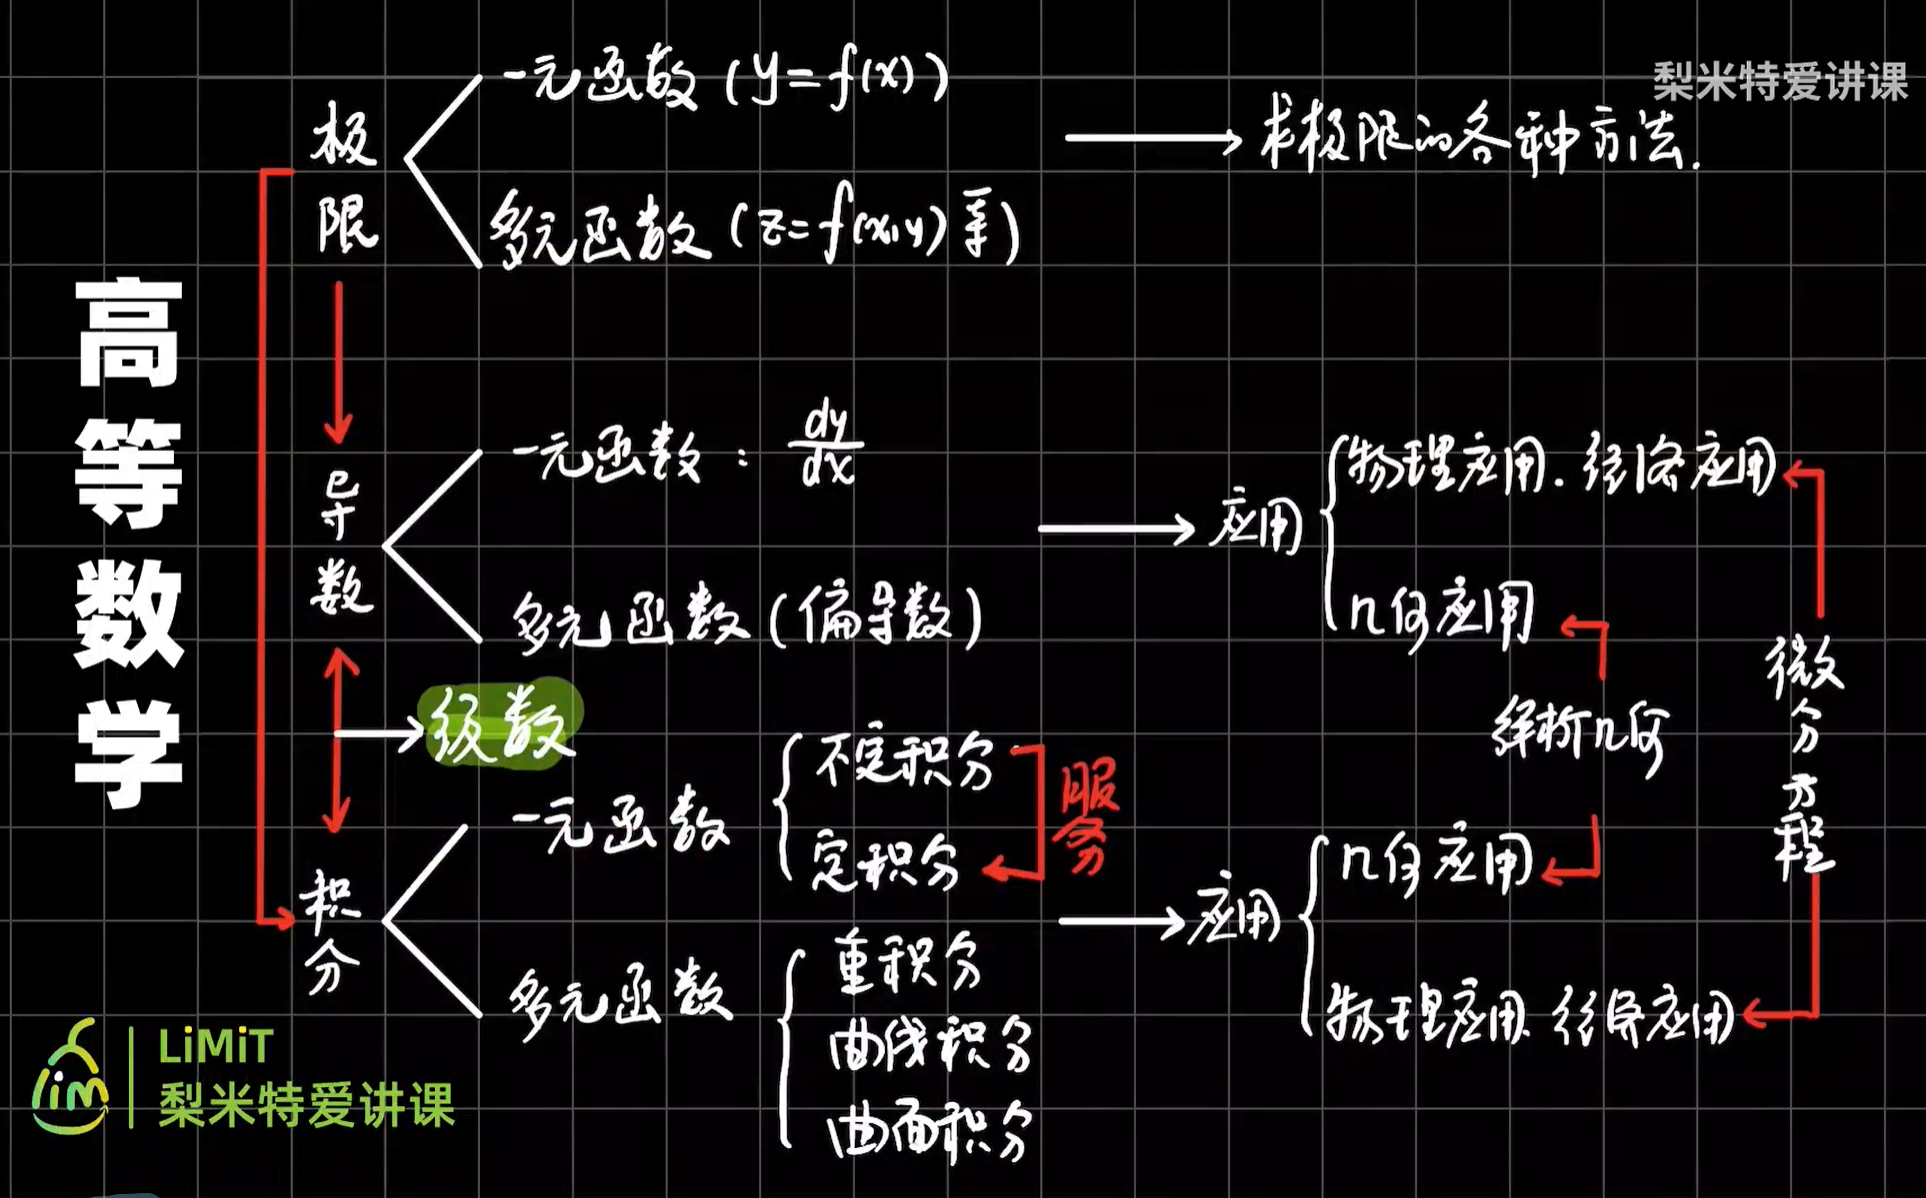 梨米特爱讲课
高等数学
极限
一元函数 (y=f(x))
多元函数 (z=f(x,y)等)
求极限的各种方法.
导数
一元函数: dy/dx
多元函数 (偏导数)
应用
物理应用. 经济应用
几何应用
级数
解析几何
微分方程
积分
一元函数
不定积分
定积分
服务
多元函数
重积分
曲线积分
曲面积分
应用
几何应用
物理应用. 经济应用
lim
LiMiT
梨米特爱讲课